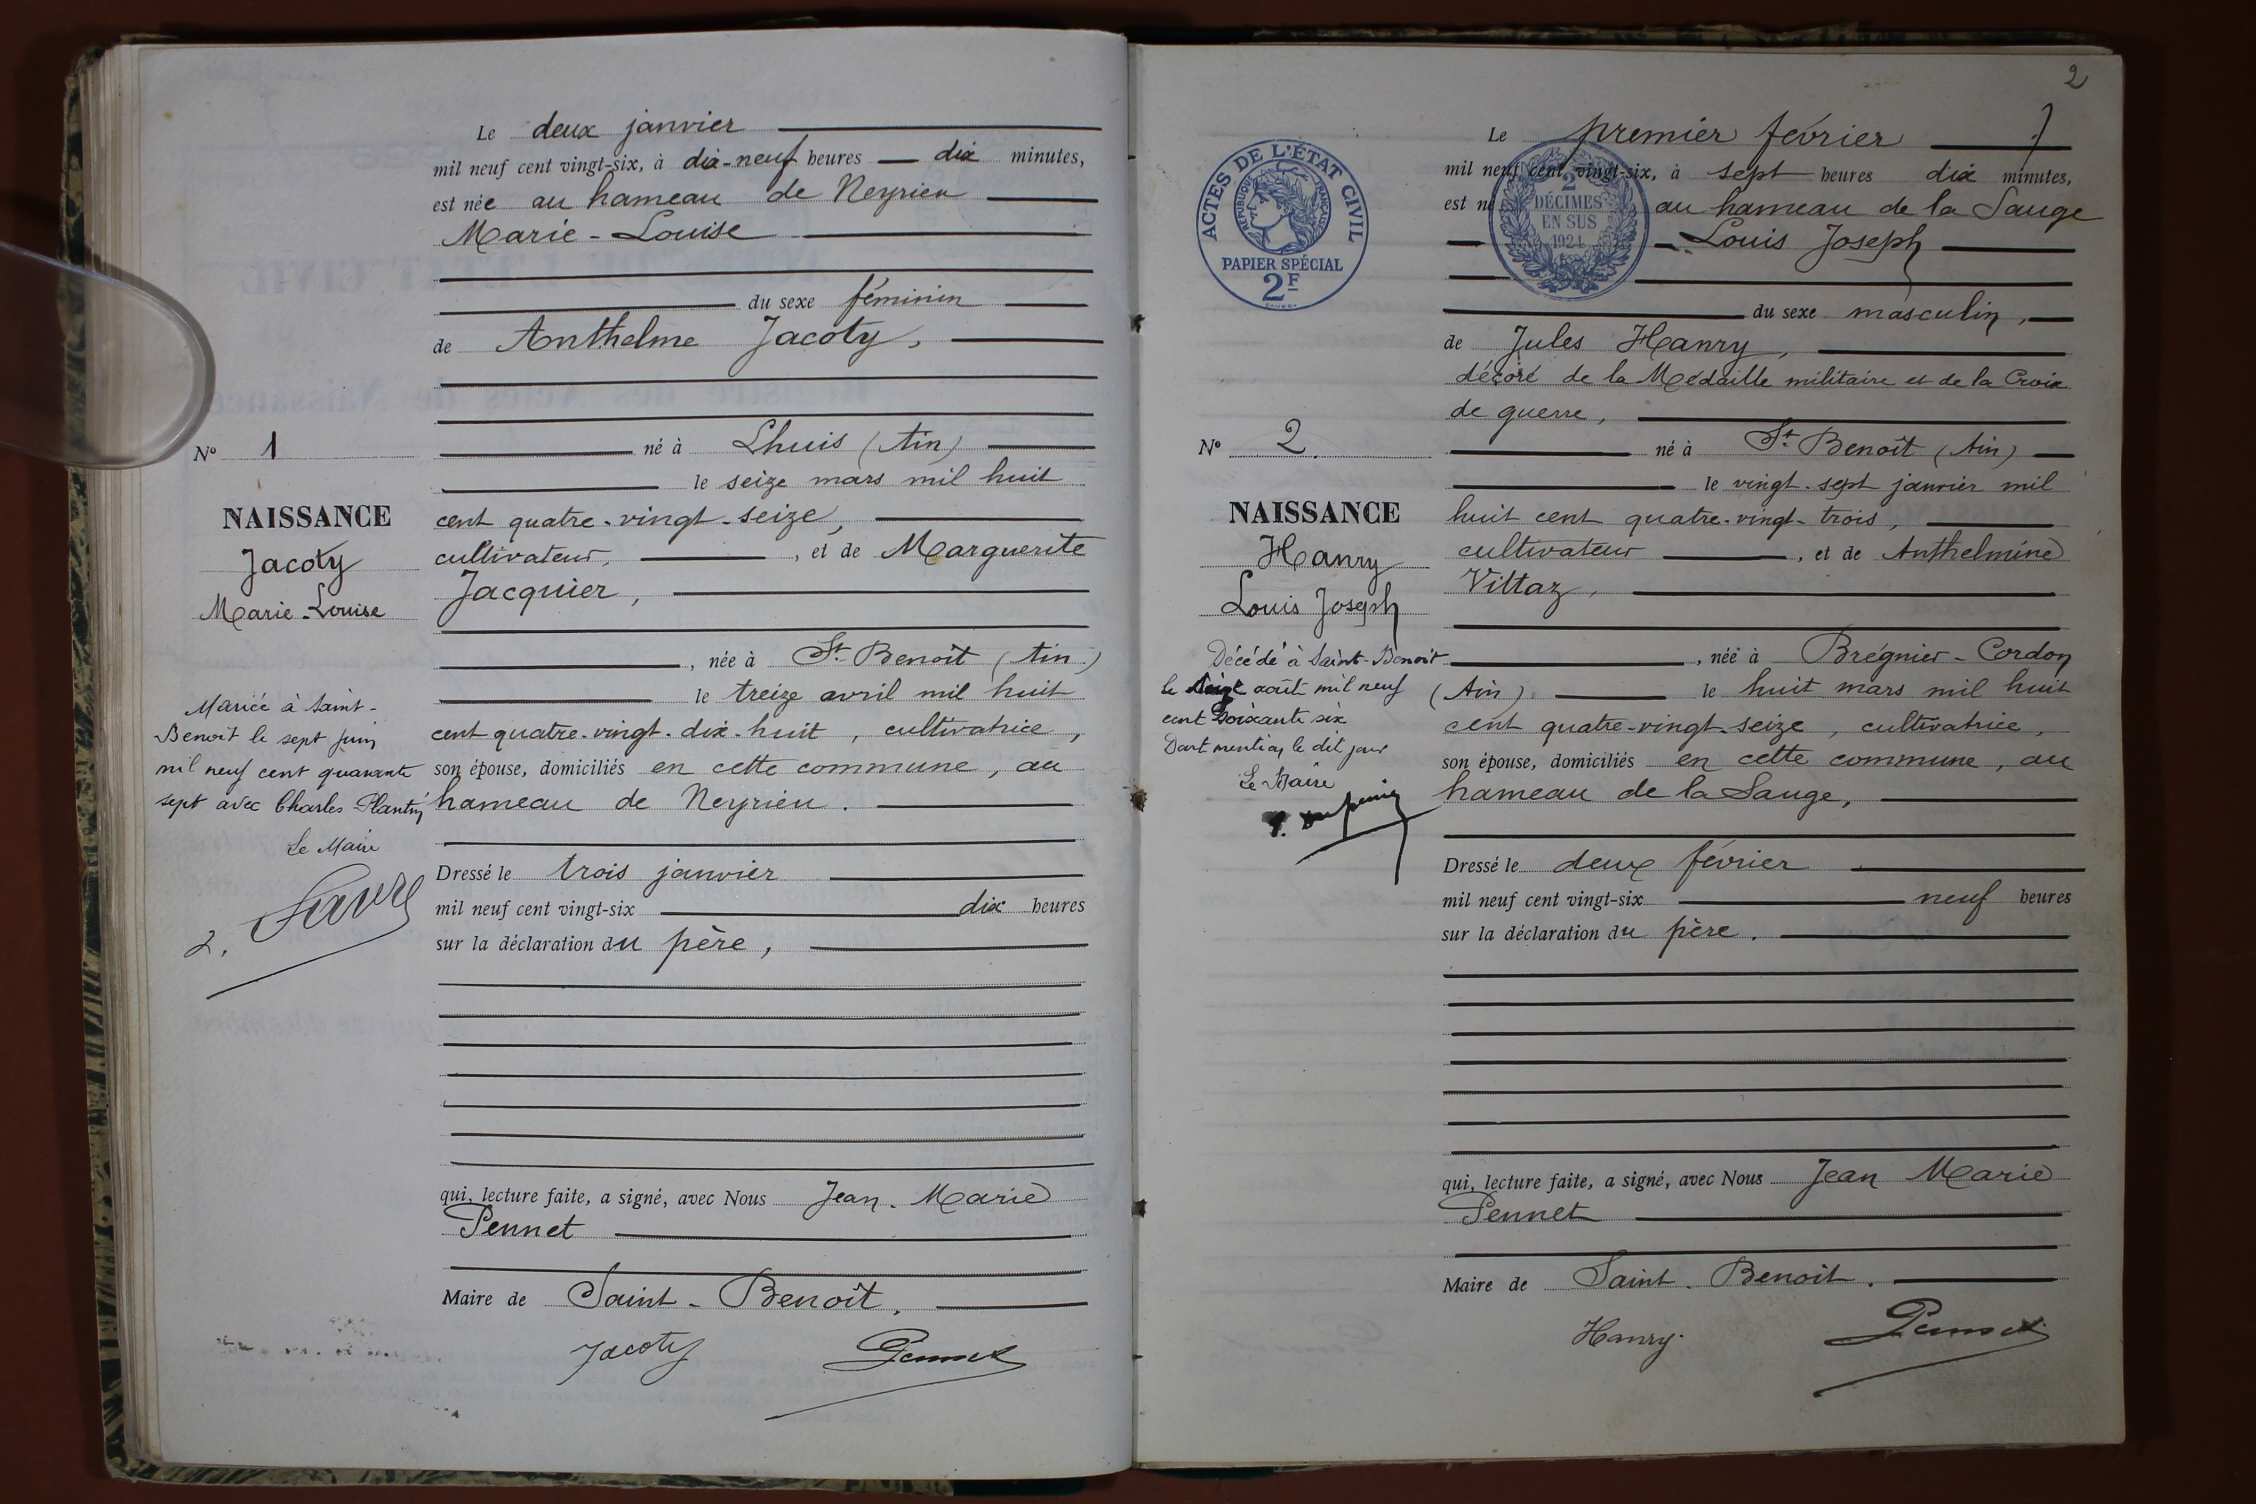 Le deux janvier
mil neuf cent vingt-six, à dix-neuf heures dix minutes,
est née au hameau de Neyrieu
Marie-Louise
du sexe féminin
de Anthelme Jacoty,
né à Lhuis (Ain)
le seize mars mil huit
cent quatre-vingt-seize,
cultivateur, , et de Marguerite
Jacquier,
, née à St. Benoît (Ain)
le treize avril mil huit
cent quatre-vingt-dix-huit, cultivatrice,
son épouse, domiciliés en cette commune, au
hameau de Neyrieu.
Dressé le trois janvier
mil neuf cent vingt-six dix heures
sur la déclaration du père,
qui, lecture faite, a signé, avec Nous Jean-Marie
Pennet
Maire de Saint-Benoît.
Jacoty Pennet
No 1
NAISSANCE
Jacoty
Marie-Louise
Mariée à Saint-
Benoît le sept juin
mil neuf cent quarante
sept avec Charles Plantin
Le Maire
2
Le premier février
mil neuf cent vingt-six, à sept heures dix minutes,
est né au hameau de la Sauge
Louis Joseph
du sexe masculin,
de Jules Hanry,
décoré de la Médaille militaire et de la Croix
de guerre,
né à St. Benoît (Ain)
le vingt-sept janvier mil
huit cent quatre-vingt-trois,
cultivateur , et de Anthelmine
Vittaz,
, née à Brégnier-Cordon
(Ain) le huit mars mil huit
cent quatre-vingt-seize, cultivatrice,
son épouse, domiciliés en cette commune, au
hameau de la Sauge,
Dressé le deux février
mil neuf cent vingt-six neuf heures
sur la déclaration du père.
qui, lecture faite, a signé, avec Nous Jean Marie
Pennet
Maire de Saint-Benoît.
Hanry. Pennet
ACTES DE L'ÉTAT CIVIL
RÉPUBLIQUE FRANÇAISE
PAPIER SPÉCIAL
2F
2
DÉCIMES
EN SUS
1924
No 2.
NAISSANCE
Hanry
Louis Joseph
Décédé à Saint-Benoît
le août mil neuf
cent soixante six
Dont mention le dit jour
Le Maire